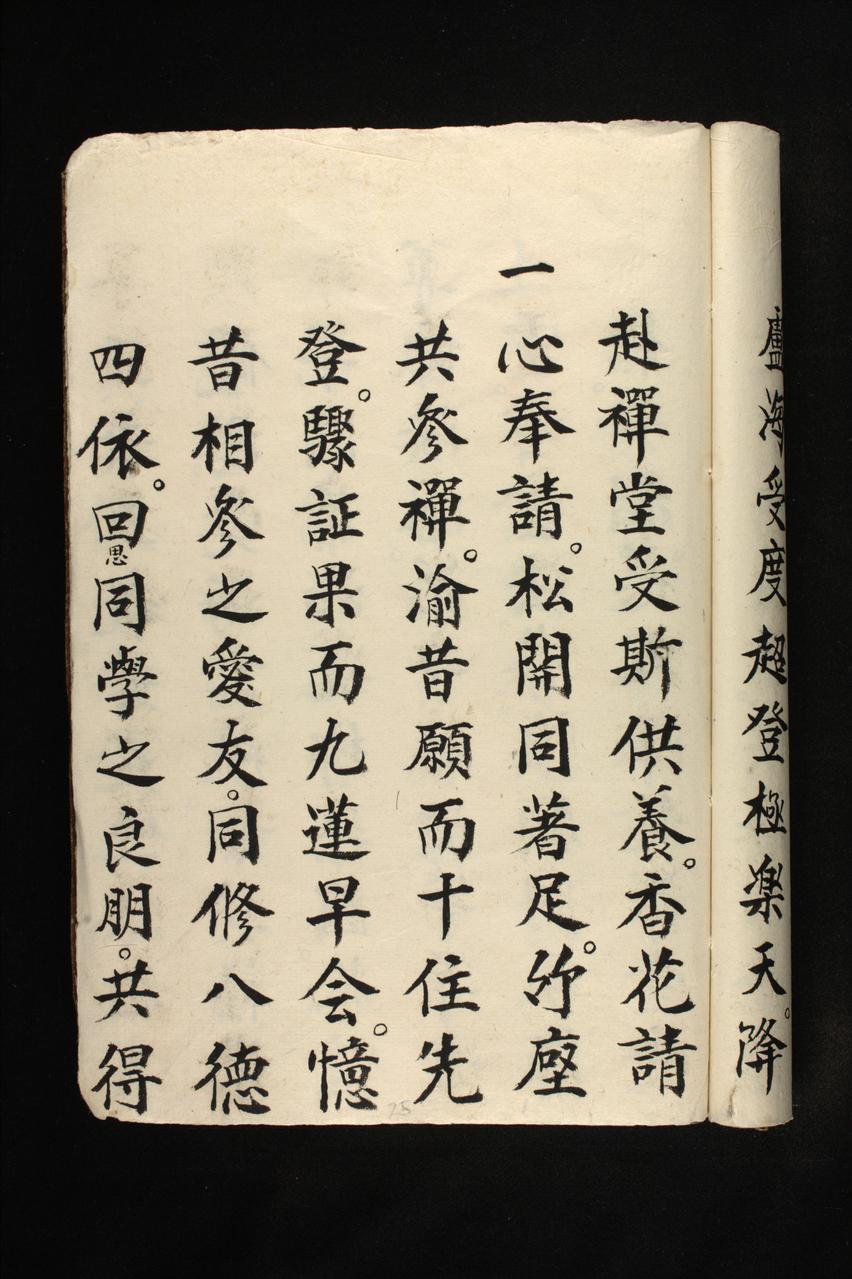 盧海受度超登極楽天。降
赴禪堂受斯供養。香花請
一心奉請。松開同著足。竹座
共參禪。渝昔願而十住先
登。驟証果而九蓮早会。憶
昔相參之愛友。同修八德
四依。回思同學之良朋。共得
25